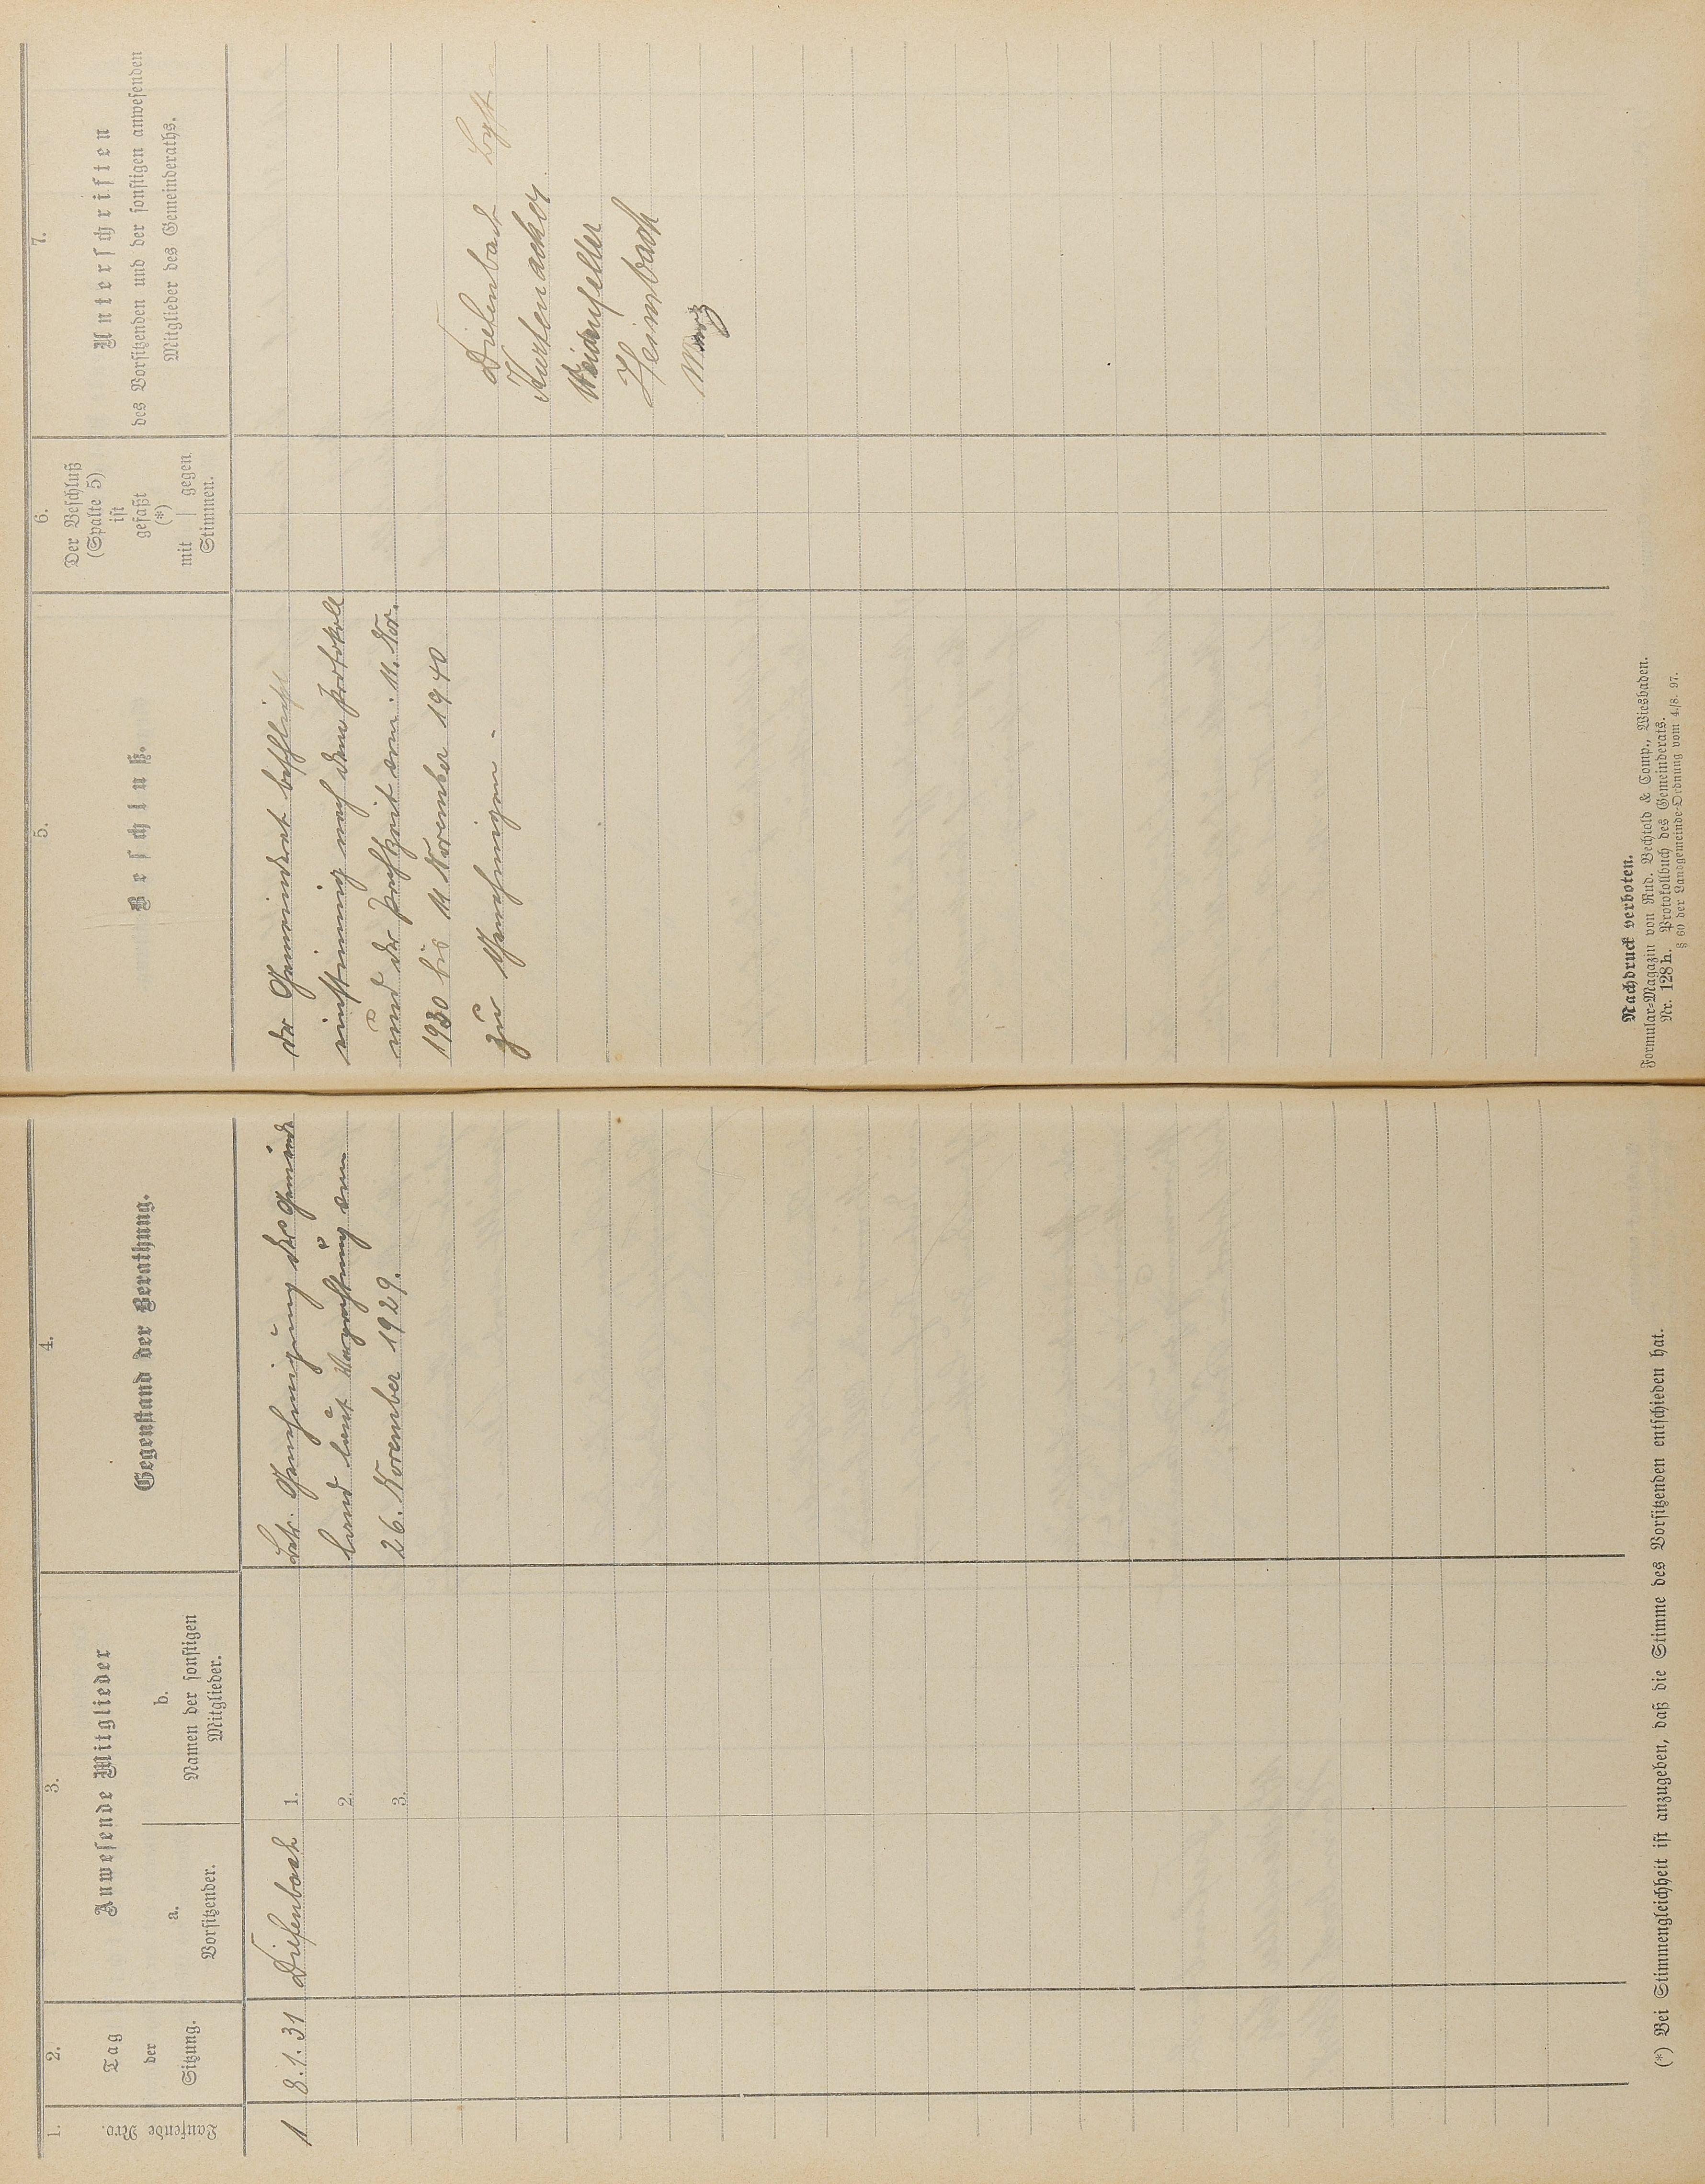 1.
Laufende Nro.
2.
Tag
der
Sitzung.
3.
Anwesende Mitglieder
a.
Vorsitzender.
b.
Namen der sonstigen
Mitglieder.
4.
Gegenstand der Berathung.
1
8.1.31
Diefenbach
1.
2.
3.
betr. Genehmigung des Gemeinde
land laut Verpachtung vom
26. November 1929.
(*) Bei Stimmengleichheit ist anzugeben, daß die Stimme des Vorsitzenden entschieden hat.
5.
Beschluß.
6.
Der Beschluß
(Spalte 5)
ist
gefaßt
(*)
mit | gegen
Stimmen.
7.
Unterschriften
des Vorsitzenden und der sonstigen anwesenden
Mitglieder des Gemeinderaths.
der Gemeinderat beschließt
einstimmig nach dem Protokoll
und der Pachtzeit vom 11. Nov.
1930 bis 11 November 1940
zu Genehmigen.
Diefenbach
Kurtenacker
Weidenfeller
Heimbach
Merz
Nachdruck verboten.
Formular-Magazin von Rud. Bechtold & Comp., Wiesbaden.
Nr. 128h. Protokollbuch des Gemeinderats.
§ 60 der Landgemeinde-Ordnung vom 4./8. 97.